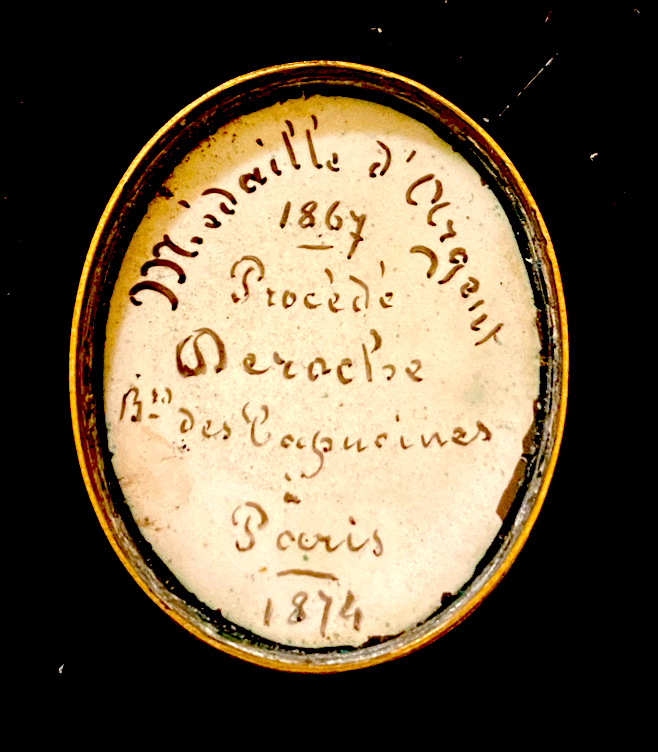 Médaille d'Argent
1867
Procédé
Deroche
Bd des Capucines
à
Paris
1874